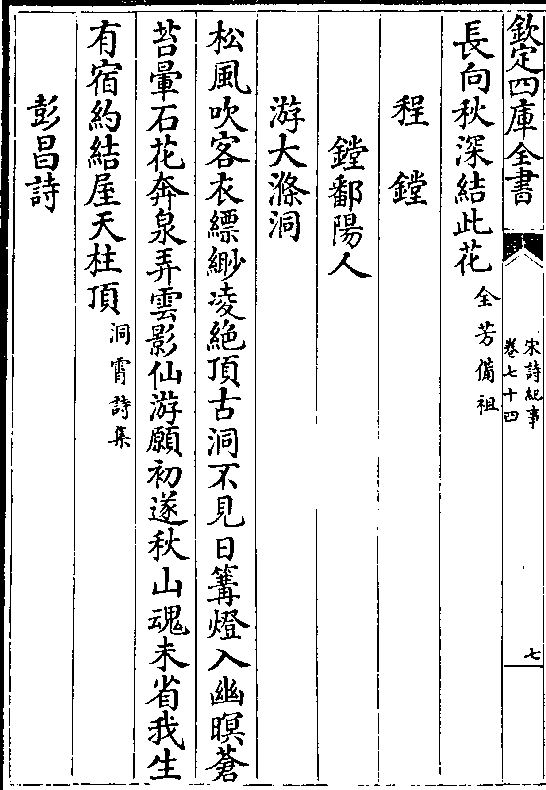 欽定四庫全書
宋詩紀事
卷七十四
七
長向秋深結此花 全芳備祖
程鏜
鏜鄱陽人
游大滌洞
松風吹客衣縹緲凌絶頂古洞不見日篝燈入幽暝蒼
苔暈石花奔泉弄雲影仙游願初遂秋山魂未省我生
有宿約結屋天柱頂 洞霄詩集
彭昌詩